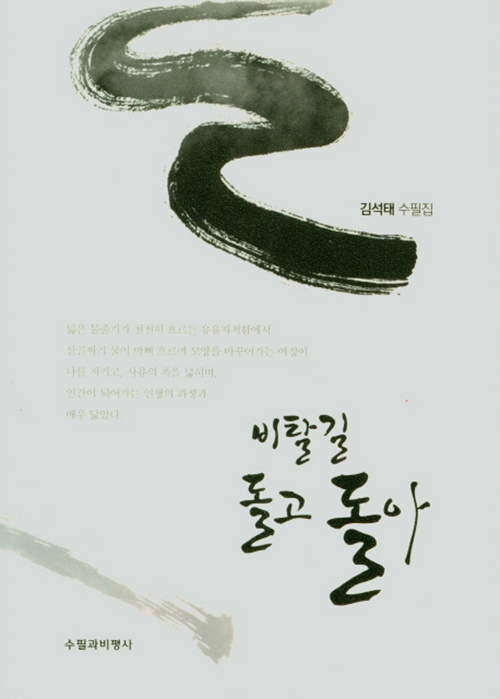 김석태 수필집
넓은 물줄기가 천천히 흐르는 유유자적함에서
산골짜기 물이 바삐 흐르며 모양을 바꾸어가는 여정이
나를 지키고, 사유의 폭을 넓히며,
인간이 되어가는 인생의 과정과
매우 닮았다.
비탈길
돌고 돌아
수필과비평사